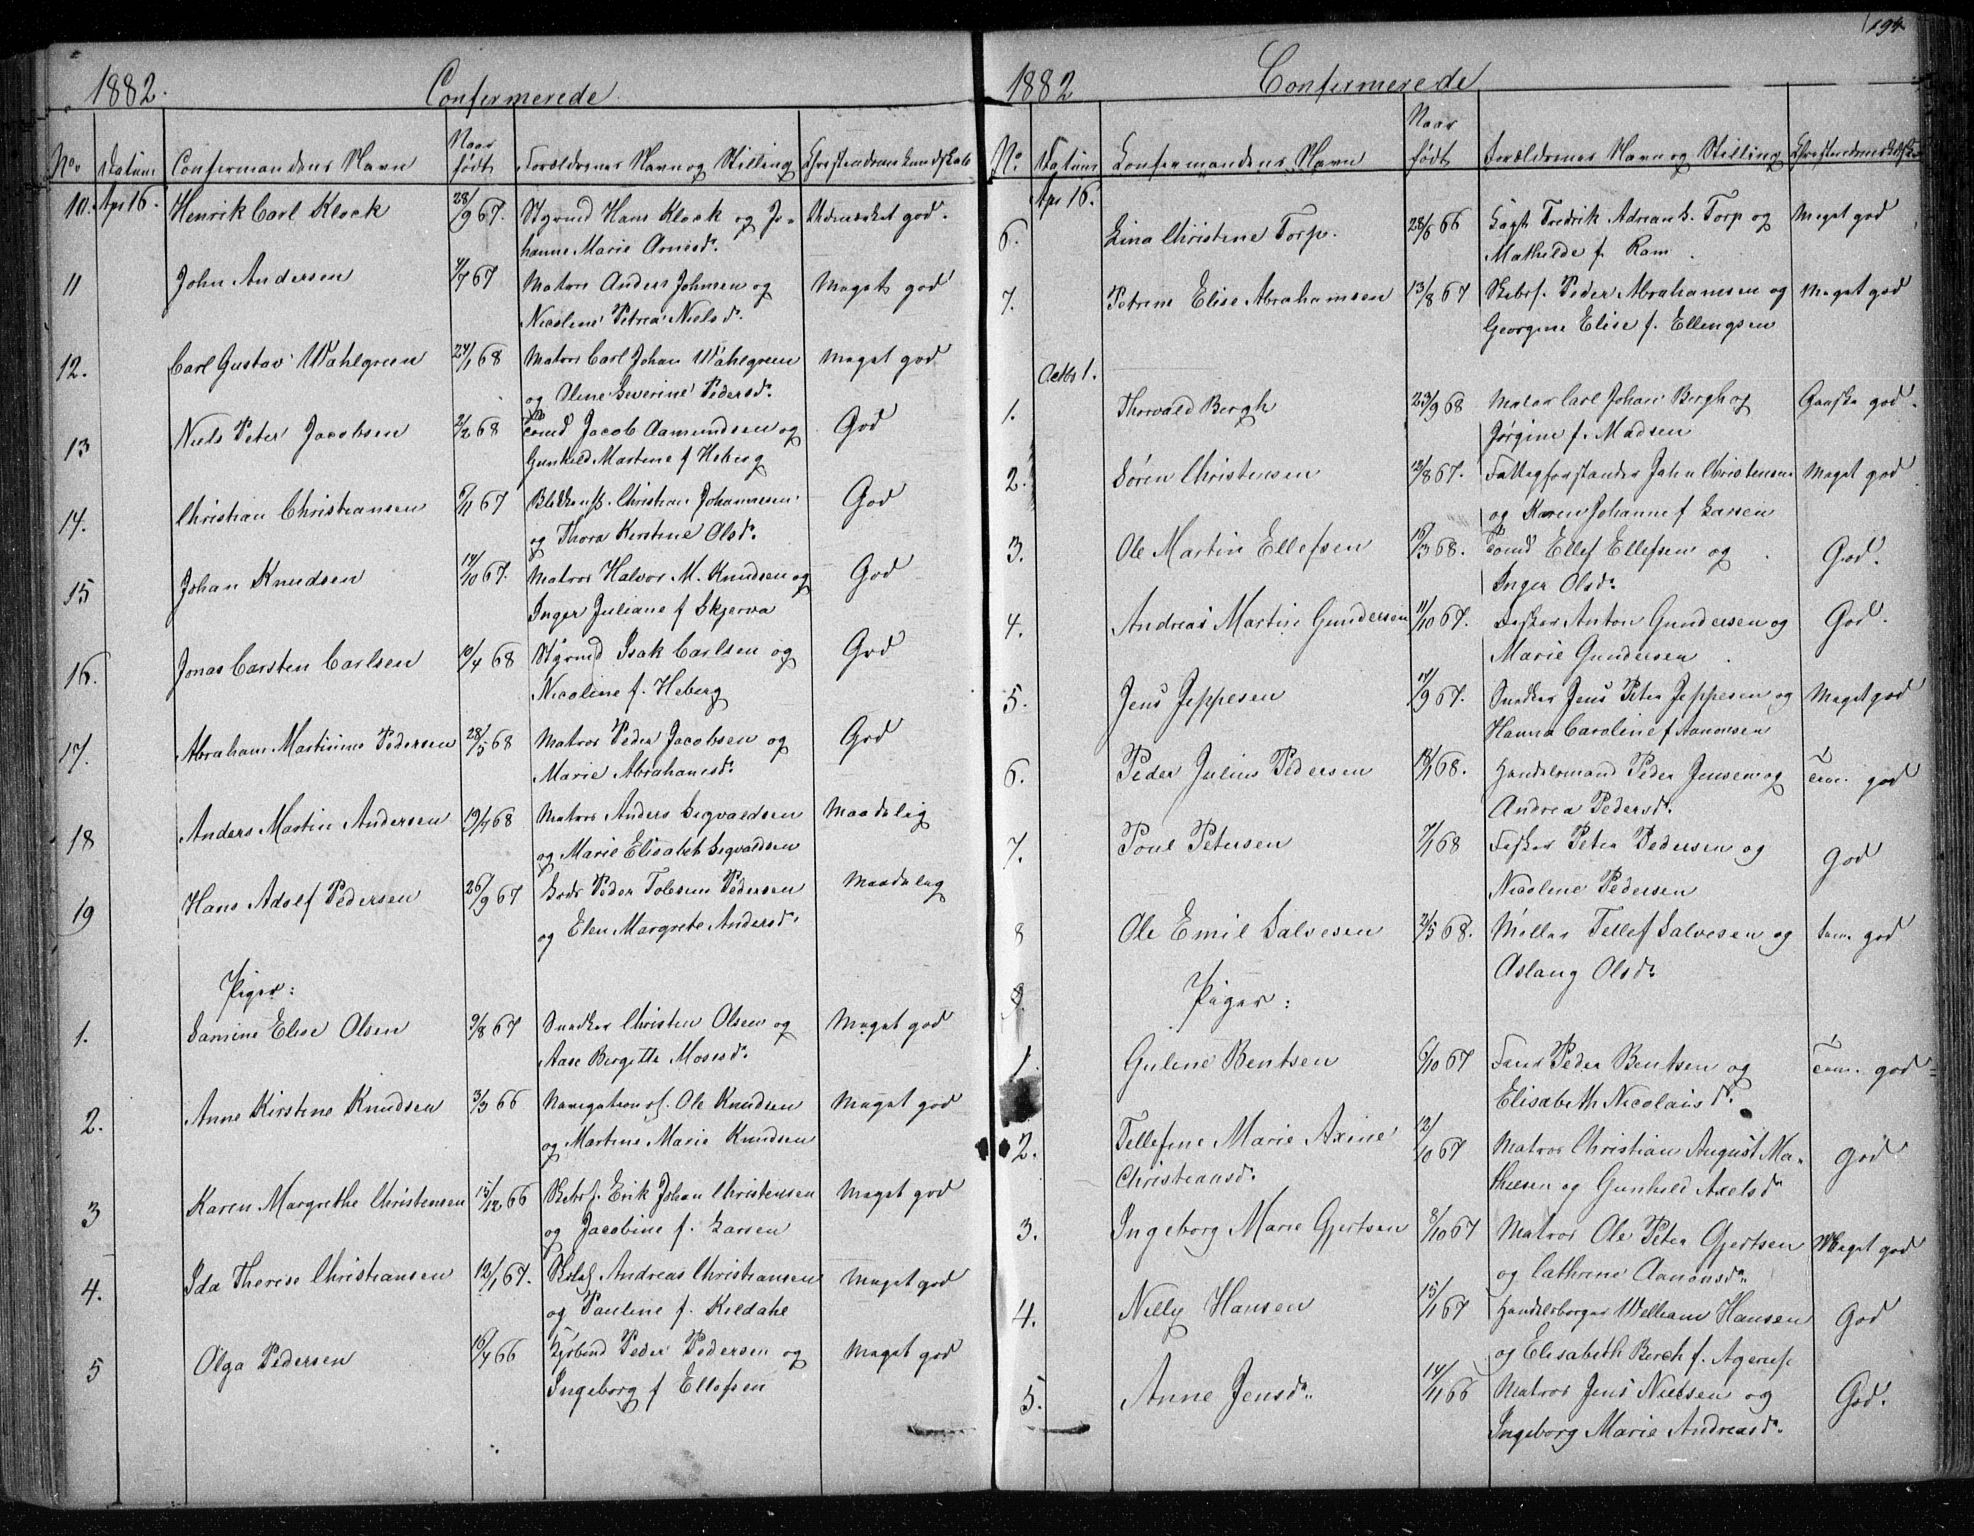 1882.
Confermerede.
No. Datum Confermandens Navn Naar født Forældrenes Navn og Stilling Christendomskundskab
10. Apr 16. Henrik Carl Klock 28/9 67. Styrmd Hans Klock og Jo- Udmærket god.
hanne Marie Arnesd.
11 John Andersen 4/7 67 Matros Anders Johnsen og Meget god
Nicoline Petrea Nielsd.
12. Carl Gustav Wahlgreen 24/1 68 Matros Carl Johan Wahlgreen Meget god
og Oline Severine Pedersd.
13 Niels Peter Jacobsen 2/2 68 Tømd Jacob Aamundsen og God
Gunhild Martine f Heberg
14. Christian Christiansen 6/11 67 Christian Johannesen God
og Thora Kirstine Olsd.
15 Johan Knudsen 14/10 67. Matros Halvor M. Knudsen og God
Inger Juliane f Skjerva
16. Jonas Carsten Carlsen 10/4 68 Styrmd Isak Carlsen og God
Nicoline f. Heberg
17. Abraham Martinius Pedersen 28/5 68 Matros Peder Jacobsen og God
Marie Abrahamsd.
18 Anders Martin Andersen 19/7 68 Matros Anders Sigvaldsen Maadelig
og Marie Elisabet Sigvaldsen
19 Hans Adolf Pedersen 26/9 67 Lods Peder Tobesen Pedersen Maadelig
og Elen Margrete Andersd.
Piger:
1. Samine Elise Olsen 9/8 67 Snedker Christen Olsen og Meget god
Aase Bergitte Mosesd.
2. Anne Kirstine Knudsen 3/3 66 Navigationsf. Ole Knudsen Meget god
og Martine Marie Knudsen
3 Karen Margrethe Christensen 15/12 66 Skibsf. Erik Johan Christensen Meget god
og Jacobine f. Larsen
4. Ida Therese Christiansen 12/1 67. Skibsf Andreas Christiansen Meget god
og Pauline f. Kildahl
5 Olga Pedersen 10/4 66 Kjøbmd Peder Pedersen og Meget god
Ingeborg f Ellefsen
194
1882
Confermerede
No Datum Confermandens Navn Naar født Forældrenes Navn og Stilling
Apr 16.
6. Lina Christine Torp. 28/6 66 Capt Fredrik Adrian L. Torp og Meget god
Mathilde f. Ram.
7. Petrine Elise Abrahamsen 13/8 67 Skibsf. Peder Abrahamsen og Meget god
Georgine Elise f. Ellengsen
Octbr 1.
1. Thorvald Bergh 23/9 68 Matros Carl Johan Bergh og Ganske god.
Jørgine f. Madsen
2. Søren Christensen 12/8 67. Fattigforstander John Christensen Meget god
og Karen Johanne f Larsen
3. Ole Martin Ellefsen 15/3 68. Tømd Ellef Ellefsen og God.
Inger Olsd.
4. Andreas Martin Gundersen 11/10 67. Fisker Anton Gundersen og God.
Marie Gundersen
5. Jens Jeppesen 14/9 67. Snedker Jens Peter Jeppesen og Meget god
Hanna Caroline f Aanonsen
6. Peder Julius Pedersen 18/1 68. Handelsmand Peder Jensen og Tem. god
Andrea Pedersd.
7. Poul Petersen 7/1 68 Fisker Peter Pedersen og God
Nicoline Pedersen
8 Ole Emil Salvesen 21/5 68. Møller Tellef Salvesen og Tem. god
Aslaug Olsd.
Piger:
1. Guline Bentsen 6/10 67 Peder Bentsen og Tem. god
Elisabeth Nicolaisd.
2. Tellefine Marie Axine 12/10 67 Matros Christian August Ma- God
Christiansd. thisen og Gunhild Axelsd
3. Ingeborg Marie Gjertsen 8/10 67 Matros Ole Peter Gjertsen Meget god
og Cathrine Aanonsd.
4. Nelly Hansen 15/1 67 Handelsborger William Hansen God
og Elisabeth Berch f. Agerup
5. Anne Jensd. 14/11 66 Matros Jens Nielsen og God.
Ingeborg Marie Andreasd.